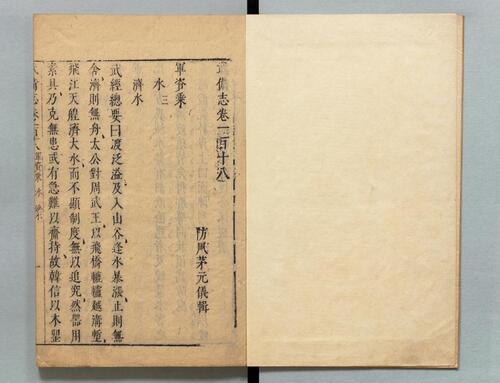 武備志卷一百十八
防風茅元儀輯
軍資乗
水三
濟水
武經總要曰渡泛溢及入山谷逢水暴漲止則無
舍濟則無舟太公對周武王以飛橋轆轤越溝塹
飛江天艎濟大水而不顯制度無以追究然器用
素具乃克無患或有急難以齎持故韓信以木罌
武備志卷一百十八 軍資乗 水 濟水 一